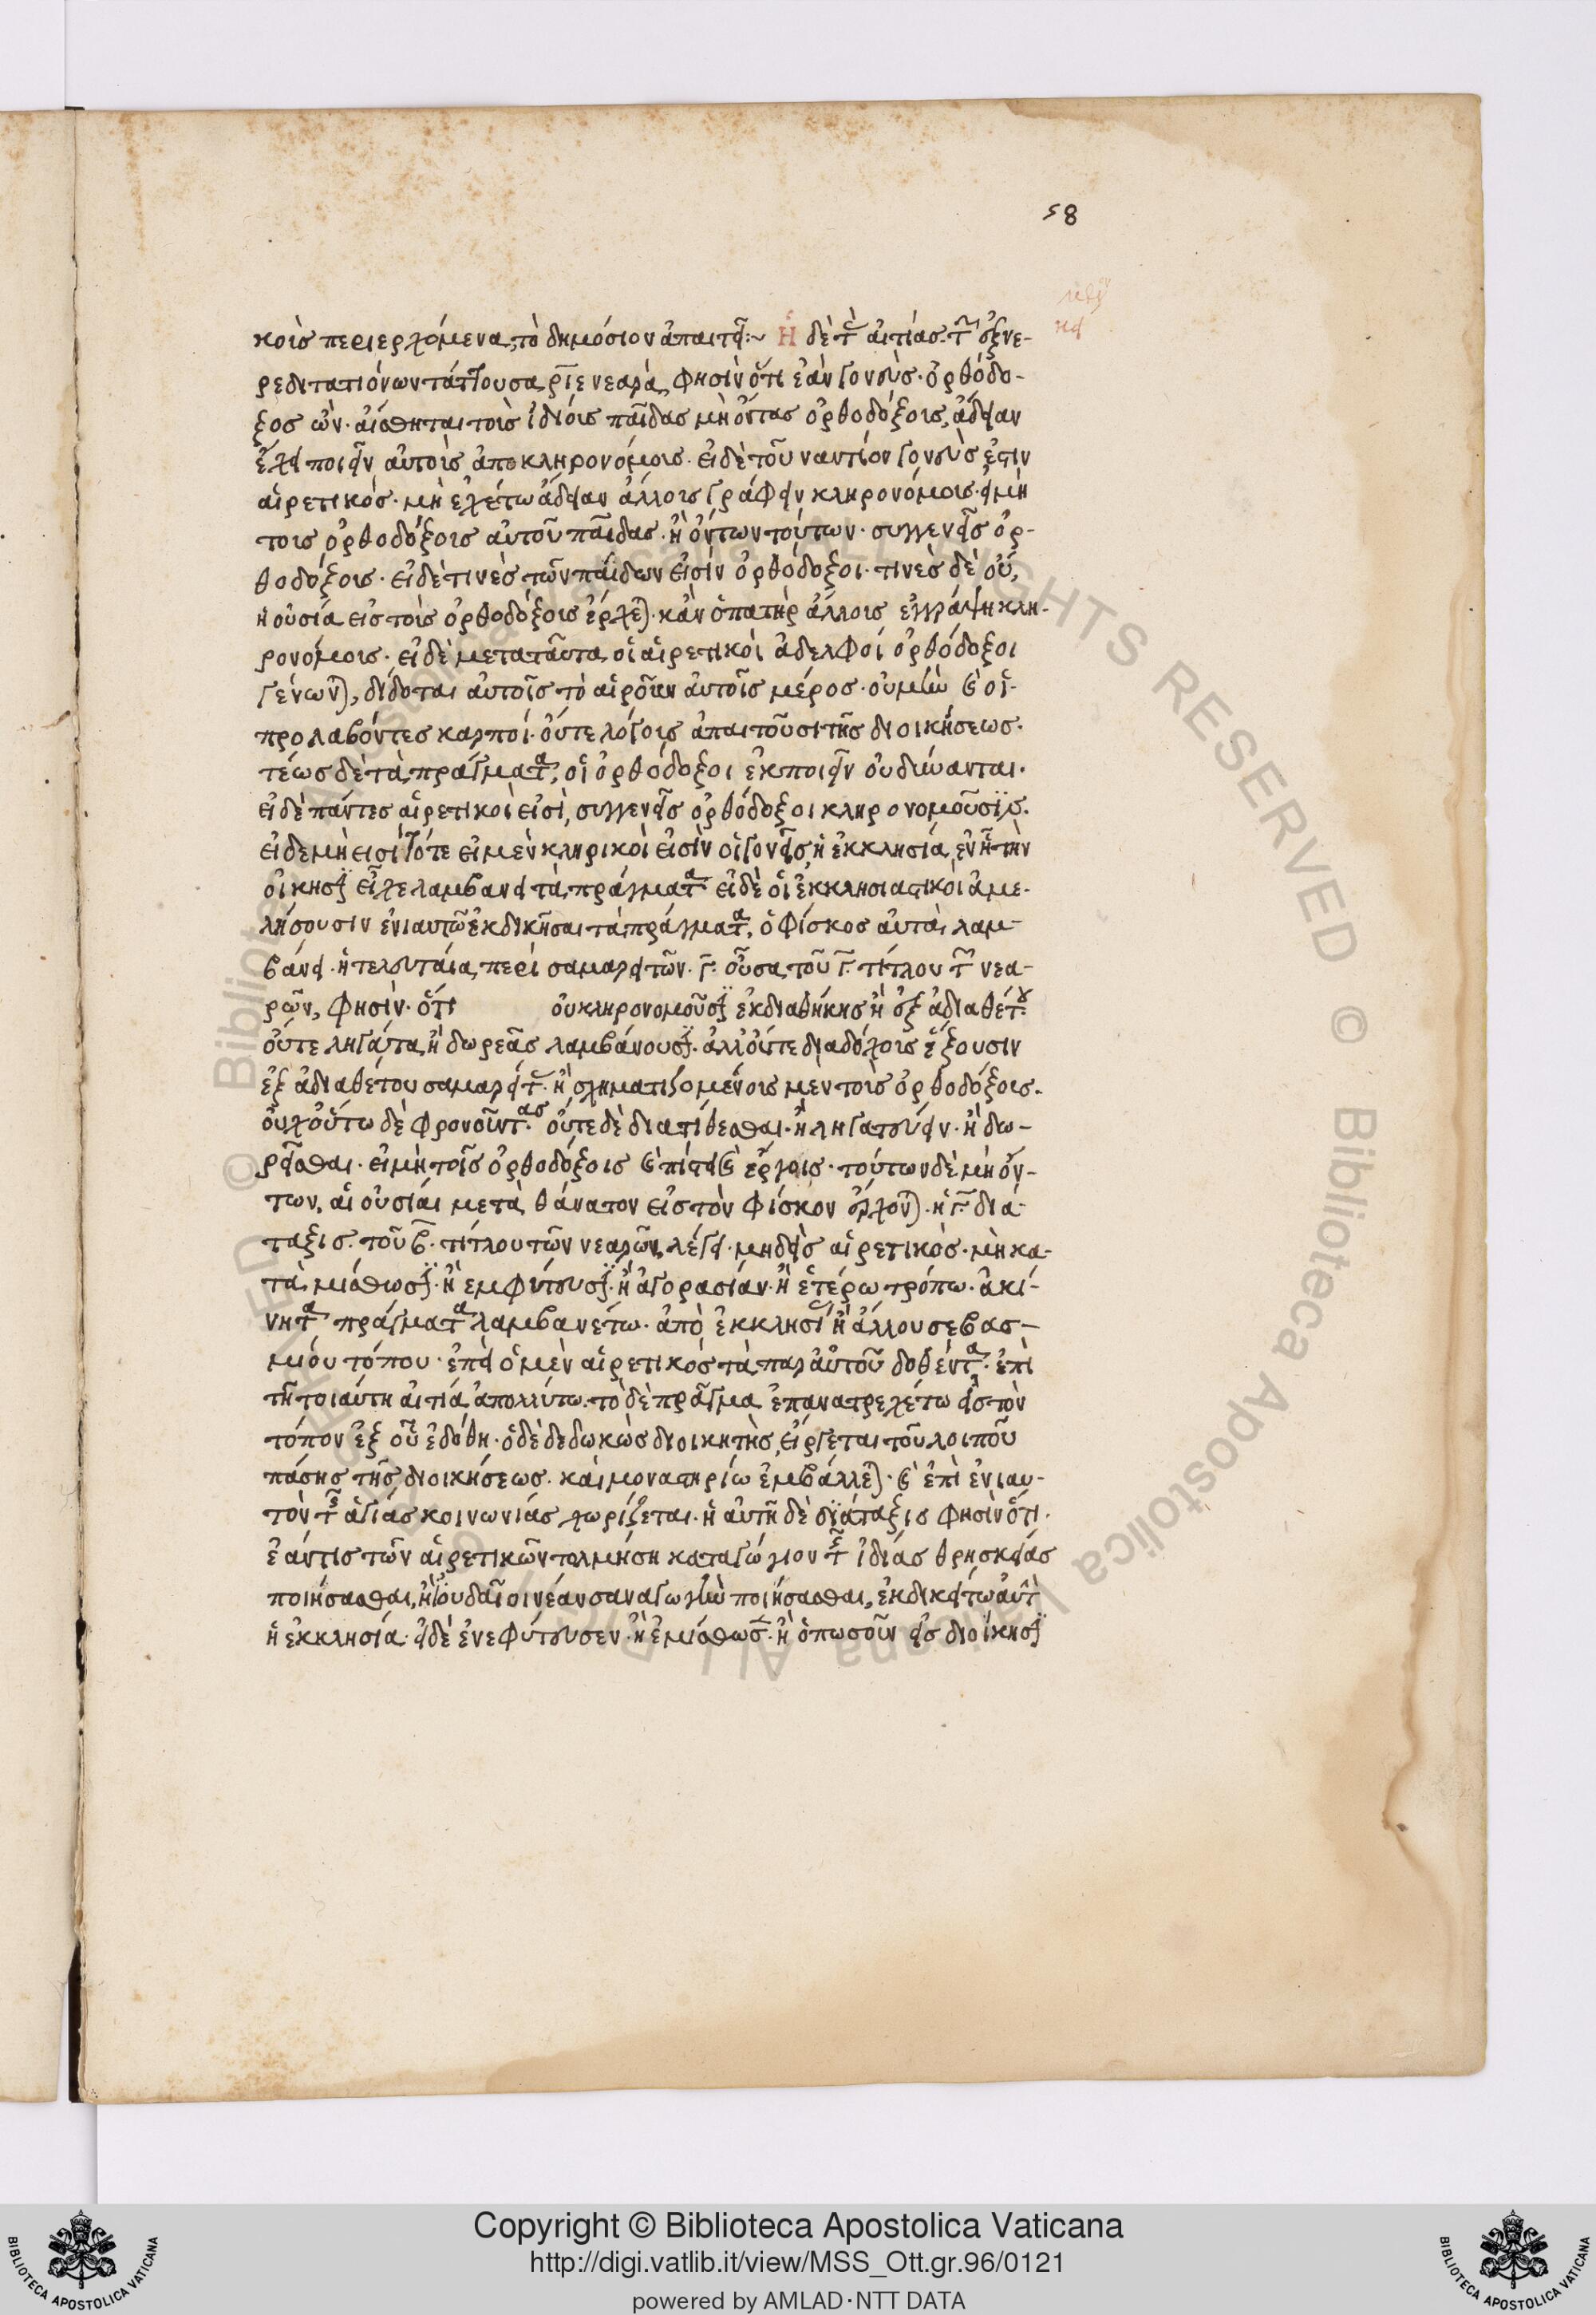 58
κδ
κοῖς περιερχόμενα, τὸ δημόσιον ἀπαιτεῖ:~ Ἡ δὲ τὰς αἰτίας τῶν ἐξνε-
ρεδιτατιόνων τάττουσα ριε νεαρὰ, φησὶν ὅτι ἐὰν γονεὺς ὀρθόδο-
ξος ὢν αἴσθηται τοὺς ἰδίους παῖδας μὴ ὄντας ὀρθοδόξους, ἄδειαν
ἔχει ποιεῖν αὐτοὺς ἀποκληρονόμους. εἰ δὲ τοὐναντίον γονεὺς ἐστιν
αἱρετικός. μὴ ἐχέτω ἄδειαν ἄλλους γράφειν κληρονόμους. εἰ μὴ
τοὺς ὀρθοδόξους αὐτοῦ παῖδας. ἢ ὄντων τούτων. συγγενεῖς ὀρ-
θοδόξους. εἰ δὲ τινὲς τῶν παίδων εἰσὶν ὀρθόδοξοι. τινὲς δὲ οὔ,
ἡ οὐσία εἰς τοὺς ὀρθοδόξους ἔρχεται. κἂν ὁ πατὴρ ἄλλους ἐγγράψη κλη-
ρονόμους. εἰ δὲ μετὰ ταῦτα οἱ αἱρετικοὶ ἀδελφοί ὀρθόδοξοι
γένωνται, δίδοται αὐτοῖς τὸ αἱροῦν αὐτοῖς μέρος. οὐ μὴν καὶ οἱ
προλαβόντες καρποί. οὔτε λόγους ἀπαιτοῦσι τῆς διοικήσεως.
τέως δὲ τὰ πράγματα, οἱ ὀρθόδοξοι ἐκποιεῖν οὐ δύνανται.
εἰ δὲ πάντες αἱρετικοὶ εἰσὶ, συγγενεῖς ὀρθόδοξοι κληρονομοῦσιν.
εἰ δὲ μὴ εἰσὶ τότε εἰ μὲν κληρικοὶ εἰσὶν οἱ γονεῖς, ἡ ἐκκλησία, ἐν ᾗ τὴν
οἴκησιν εἶχε λαμβάνει τὰ πράγματα εἰ δὲ οἱ ἐκκλησιαστικοὶ ἀμε-
λήσουσιν ἐνιαυτῷ ἐκδικῆσαι τὰ πράγματα, ὁ φίσκος αὐτὰ λαμ-
βάνει. ἡ τελευταία περὶ σαμαρειτῶν. γ. οὖσα τοῦ γ. τίτλου τῶν νεα-
ρῶν, φησὶν. ὅτι οὐ κληρονομοῦσιν ἐκ διαθήκης ἢ ἐξ ἀδιαθέτου
οὔτε ληγάτα ἢ δωρεὰς λαμβάνουσιν. ἀλλ' οὔτε διαδόχους ἕξουσιν
ἐξ ἀδιαθέτου σαμαρείτας. ἢ σχηματιζομένους μὲν τοὺς ὀρθοδόξους.
οὐχ οὕτω δὲ φρονοῦντας οὔτε δὲ διατίθεσθαι. ἢ ληγατεύειν. ἢ δω-
ρεῖσθαι. εἰ μὴ τοῖς ὀρθοδόξοις καὶ πίστει καὶ ἔργοις. τούτων δὲ μὴ ὄν-
των, αἱ οὐσίαι μετὰ θάνατον εἰς τὸν φίσκον ἔρχονται. ἡ γ. διά-
ταξις. τοῦ β. τίτλου τῶν νεαρῶν, λέγει. μηδεὶς αἱρετικὸς. μὴ κα-
τὰ μίσθωσιν. ἢ ἐμφύτευσιν. ἢ ἀγορασίαν. ἢ ἑτέρω τρόπω. ἀκί-
νητα πράγματα λαμβανέτω. ἀπὸ ἐκκλησίας ἢ ἄλλου σεβασ-
μίου τόπου. ἐπεὶ ὁ μὲν αἱρετικὸς τὰ παρ' αὐτοῦ δοθέντα. ἐπὶ
τῇ τοιαύτη αἰτία ἀπολλύτω. τὸ δὲ πρᾶγμα ἐπανατρεχέτω εἰς τὸν
τόπον ἐξ οὗ ἐδόθη. ὁ δὲ δεδωκὼς διοικητὴς, εἴργεται τοῦ λοιποῦ
πάσης τῆς διοικήσεως. καὶ μοναστηρίω ἐμβάλλεται. καὶ ἐπὶ ἐνιαυ-
τὸν τῆς ἁγίας κοινωνίας χωρίζεται. ἡ αὐτὴ δὲ διάταξις φησὶν ὅτι.
ἐάν τις τῶν αἱρετικῶν τολμήση καταγώγιον τῆς ἰδίας θρησκείας
ποιήσασθαι, ἢ ἰουδαῖοι νέαν σαναγωγὴν ποιήσασθαι, ἐκδικείτω αὐτὰ
ἡ ἐκκλησία. εἰ δὲ ἐνεφύτευσεν. ἢ ἐμίσθωσε. ἢ ὁπωσοῦν εἰς διοίκησιν
Copyright © Biblioteca Apostolica Vaticana
http://digi.vatlib.it/view/MSS_Ott.gr.96/0121
powered by AMLAD·NTT DATA